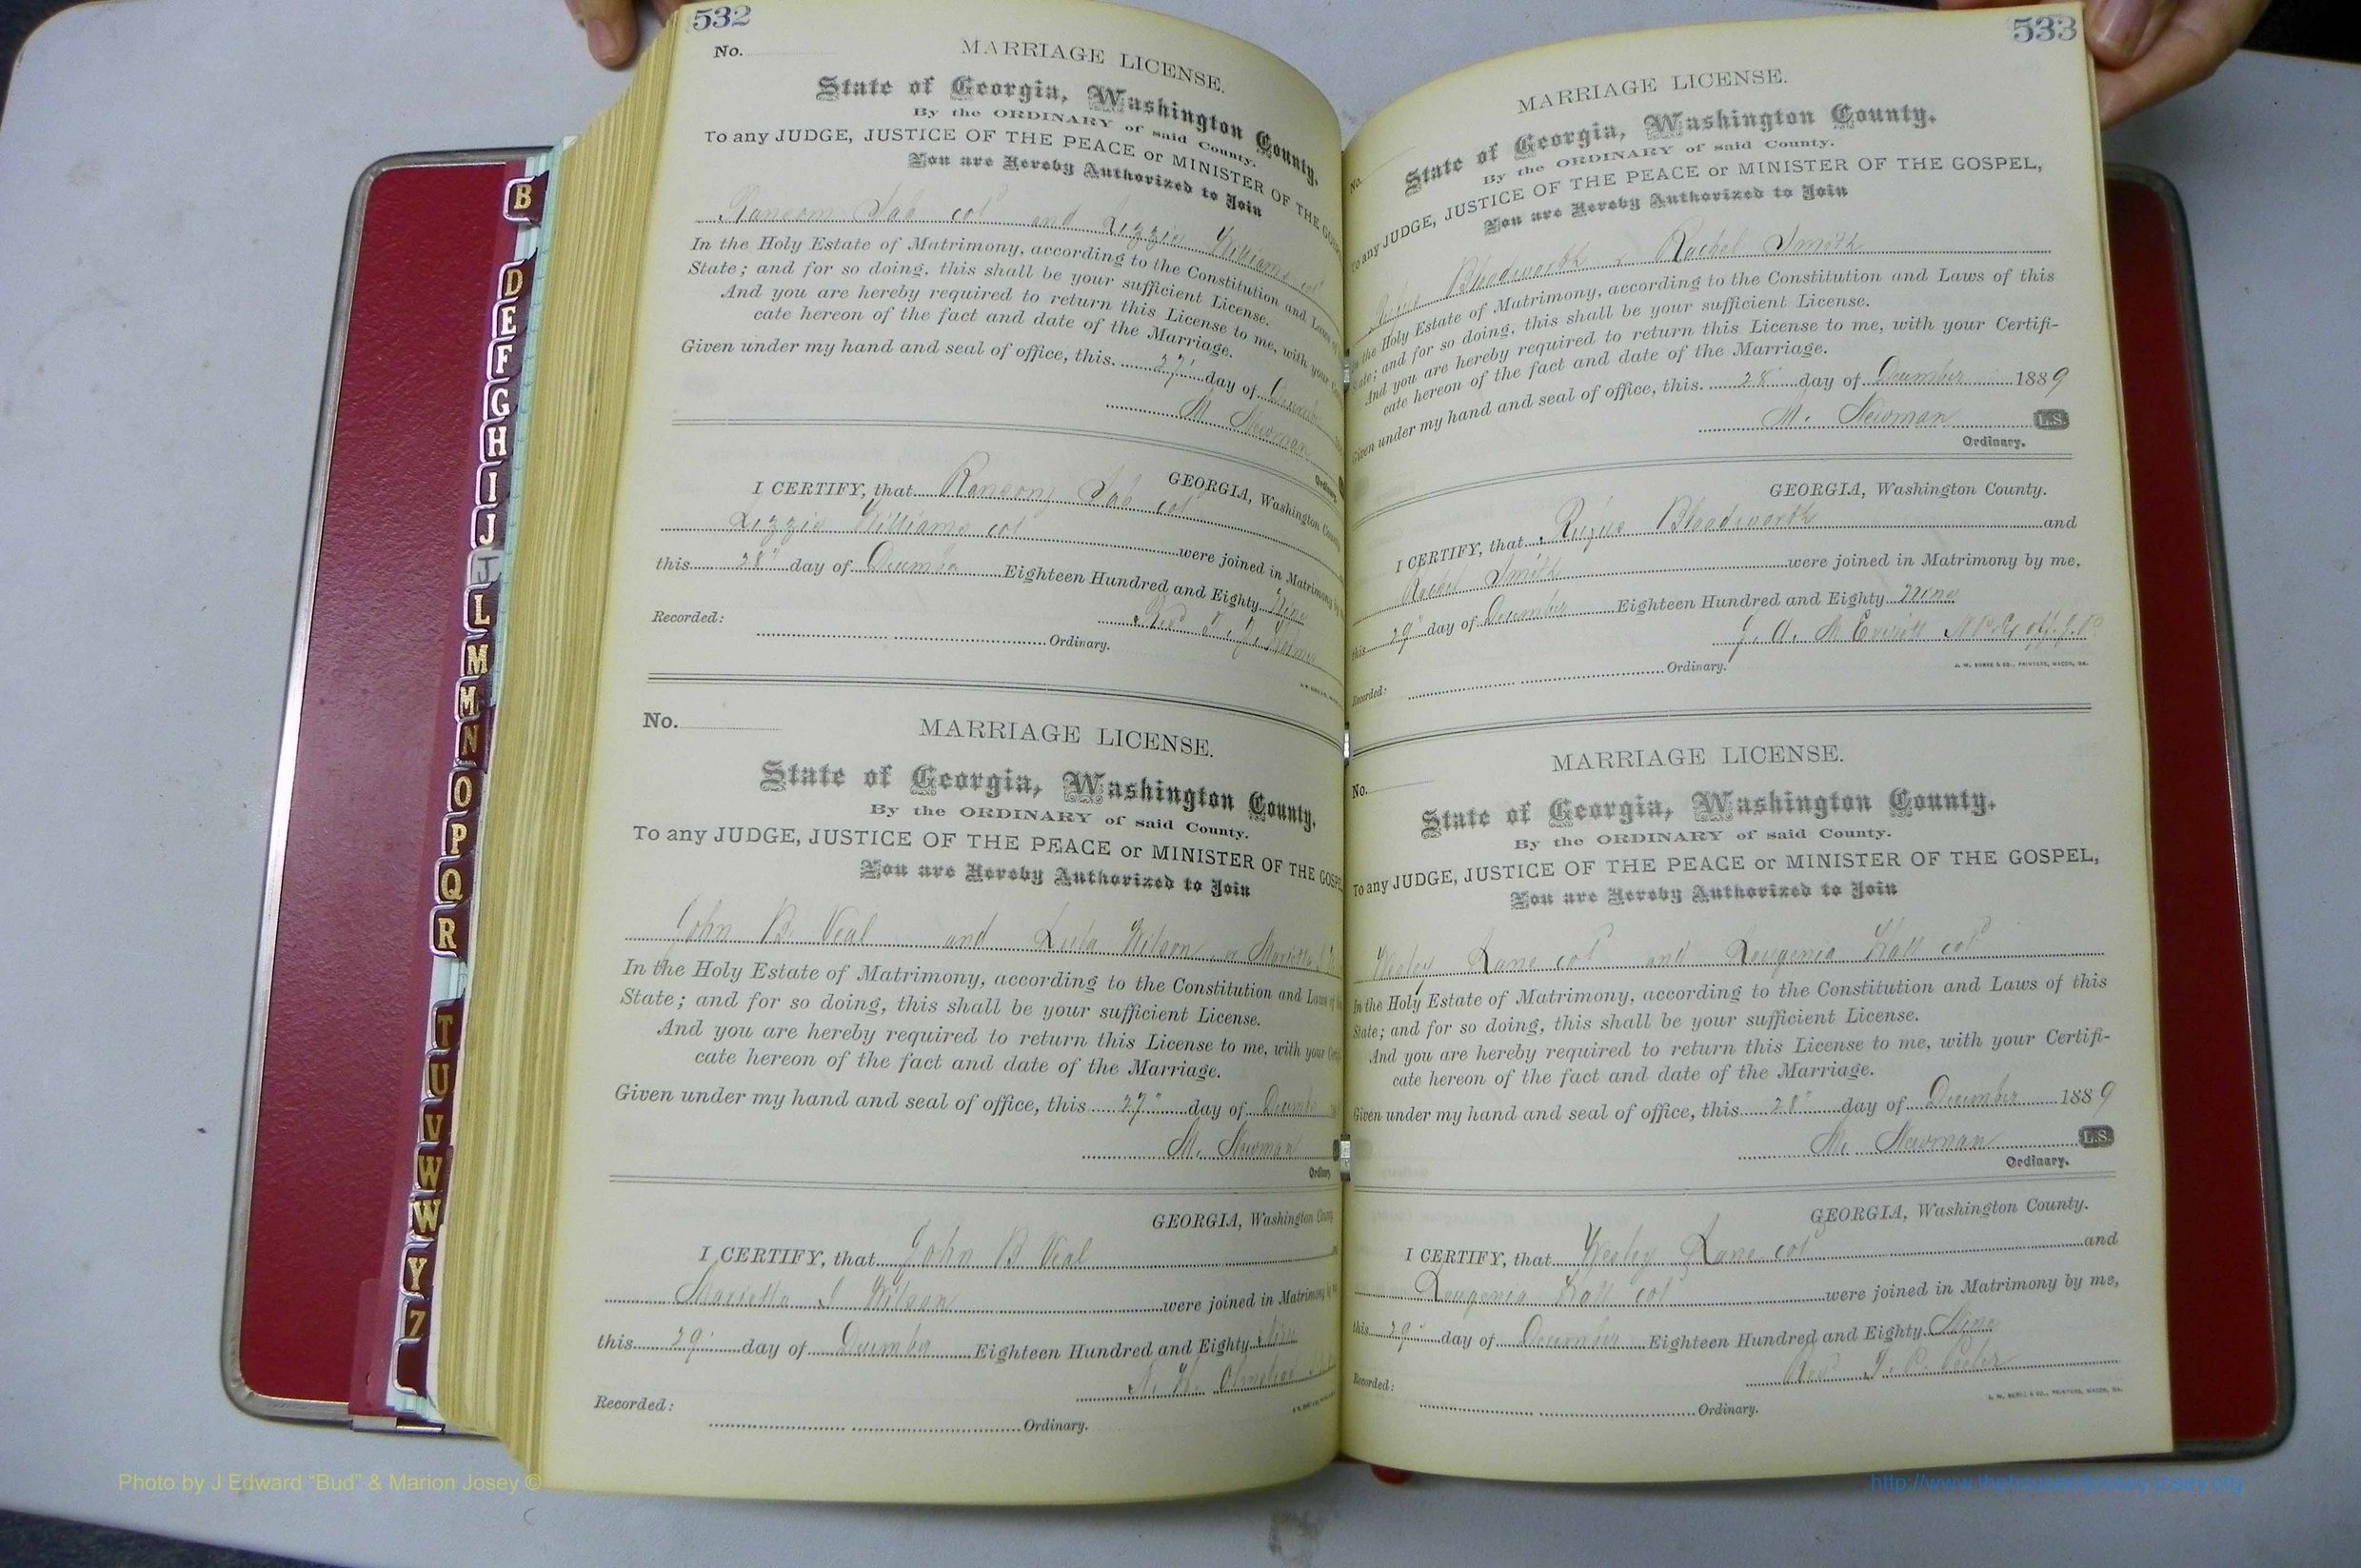 532
No.
MARRIAGE LICENSE.
State of Georgia, Washington County.
By the ORDINARY of said County.
To any JUDGE, JUSTICE OF THE PEACE or MINISTER OF THE GOS
You are Hereby Authorized to Join
Ransom Tab col and Lizzie Williams col
In the Holy Estate of Matrimony, according to the Constitution and Laws of
State; and for so doing, this shall be your sufficient License.
And you are hereby required to return this License to me, with your
cate hereon of the fact and date of the Marriage.
Given under my hand and seal of office, this 27" day of December
M. Newman
Ordinary
GEORGIA, Washington County
I CERTIFY, that Ransom Tab col
Lizzie Williams col were joined in Matrimony
this 28" day of December Eighteen Hundred and Eighty Nine
Rev
Recorded: Ordinary.
No.
MARRIAGE LICENSE.
State of Georgia, Washington County.
By the ORDINARY of said County.
To any JUDGE, JUSTICE OF THE PEACE or MINISTER OF THE GOSPEL
You are Hereby Authorized to Join
John B. Veal and Lula Wilson or Marietta
In the Holy Estate of Matrimony, according to the Constitution and Laws of
State; and for so doing, this shall be your sufficient License.
And you are hereby required to return this License to me, with your
cate hereon of the fact and date of the Marriage.
Given under my hand and seal of office, this 27" day of December
M. Newman
Ordinary
GEORGIA, Washington County
I CERTIFY, that John B Veal
Marietta I Wilson were joined in Matrimony by
this 29" day of December Eighteen Hundred and Eighty Nine
Recorded: Ordinary.
533
No.
MARRIAGE LICENSE.
State of Georgia, Washington County.
By the ORDINARY of said County.
To any JUDGE, JUSTICE OF THE PEACE or MINISTER OF THE GOSPEL,
You are Hereby Authorized to Join
Rufus Bloodworth & Rachel Smith
the Holy Estate of Matrimony, according to the Constitution and Laws of this
State; and for so doing, this shall be your sufficient License.
And you are hereby required to return this License to me, with your Certifi-
cate hereon of the fact and date of the Marriage.
Given under my hand and seal of office, this 28" day of December 1889
M. Newman L.S.
Ordinary.
GEORGIA, Washington County.
I CERTIFY, that Rufus Bloodworth and
Rachel Smith were joined in Matrimony by me,
this 29" day of December Eighteen Hundred and Eighty Nine
Recorded: Ordinary.
J. W. BURKE & CO., PRINTERS, MACON, GA.
No.
MARRIAGE LICENSE.
State of Georgia, Washington County.
By the ORDINARY of said County.
To any JUDGE, JUSTICE OF THE PEACE or MINISTER OF THE GOSPEL,
You are Hereby Authorized to Join
Wesley Lane col and Lougenia Hall col
In the Holy Estate of Matrimony, according to the Constitution and Laws of this
State; and for so doing, this shall be your sufficient License.
And you are hereby required to return this License to me, with your Certifi-
cate hereon of the fact and date of the Marriage.
Given under my hand and seal of office, this 28" day of December 1889
M. Newman L.S.
Ordinary.
GEORGIA, Washington County.
I CERTIFY, that Wesley Lane col and
Lougenia Hall col were joined in Matrimony by me,
this 29" day of December Eighteen Hundred and Eighty Nine
Rev
Recorded: Ordinary.
J. W. BURKE & CO., PRINTERS, MACON, GA.
B
D
E
F
G
H
I
J
J
L
M
M
N
O
P
Q
R
T
U
V
W
W
Y
Z
Photo by J Edward “Bud” & Marion Josey ©